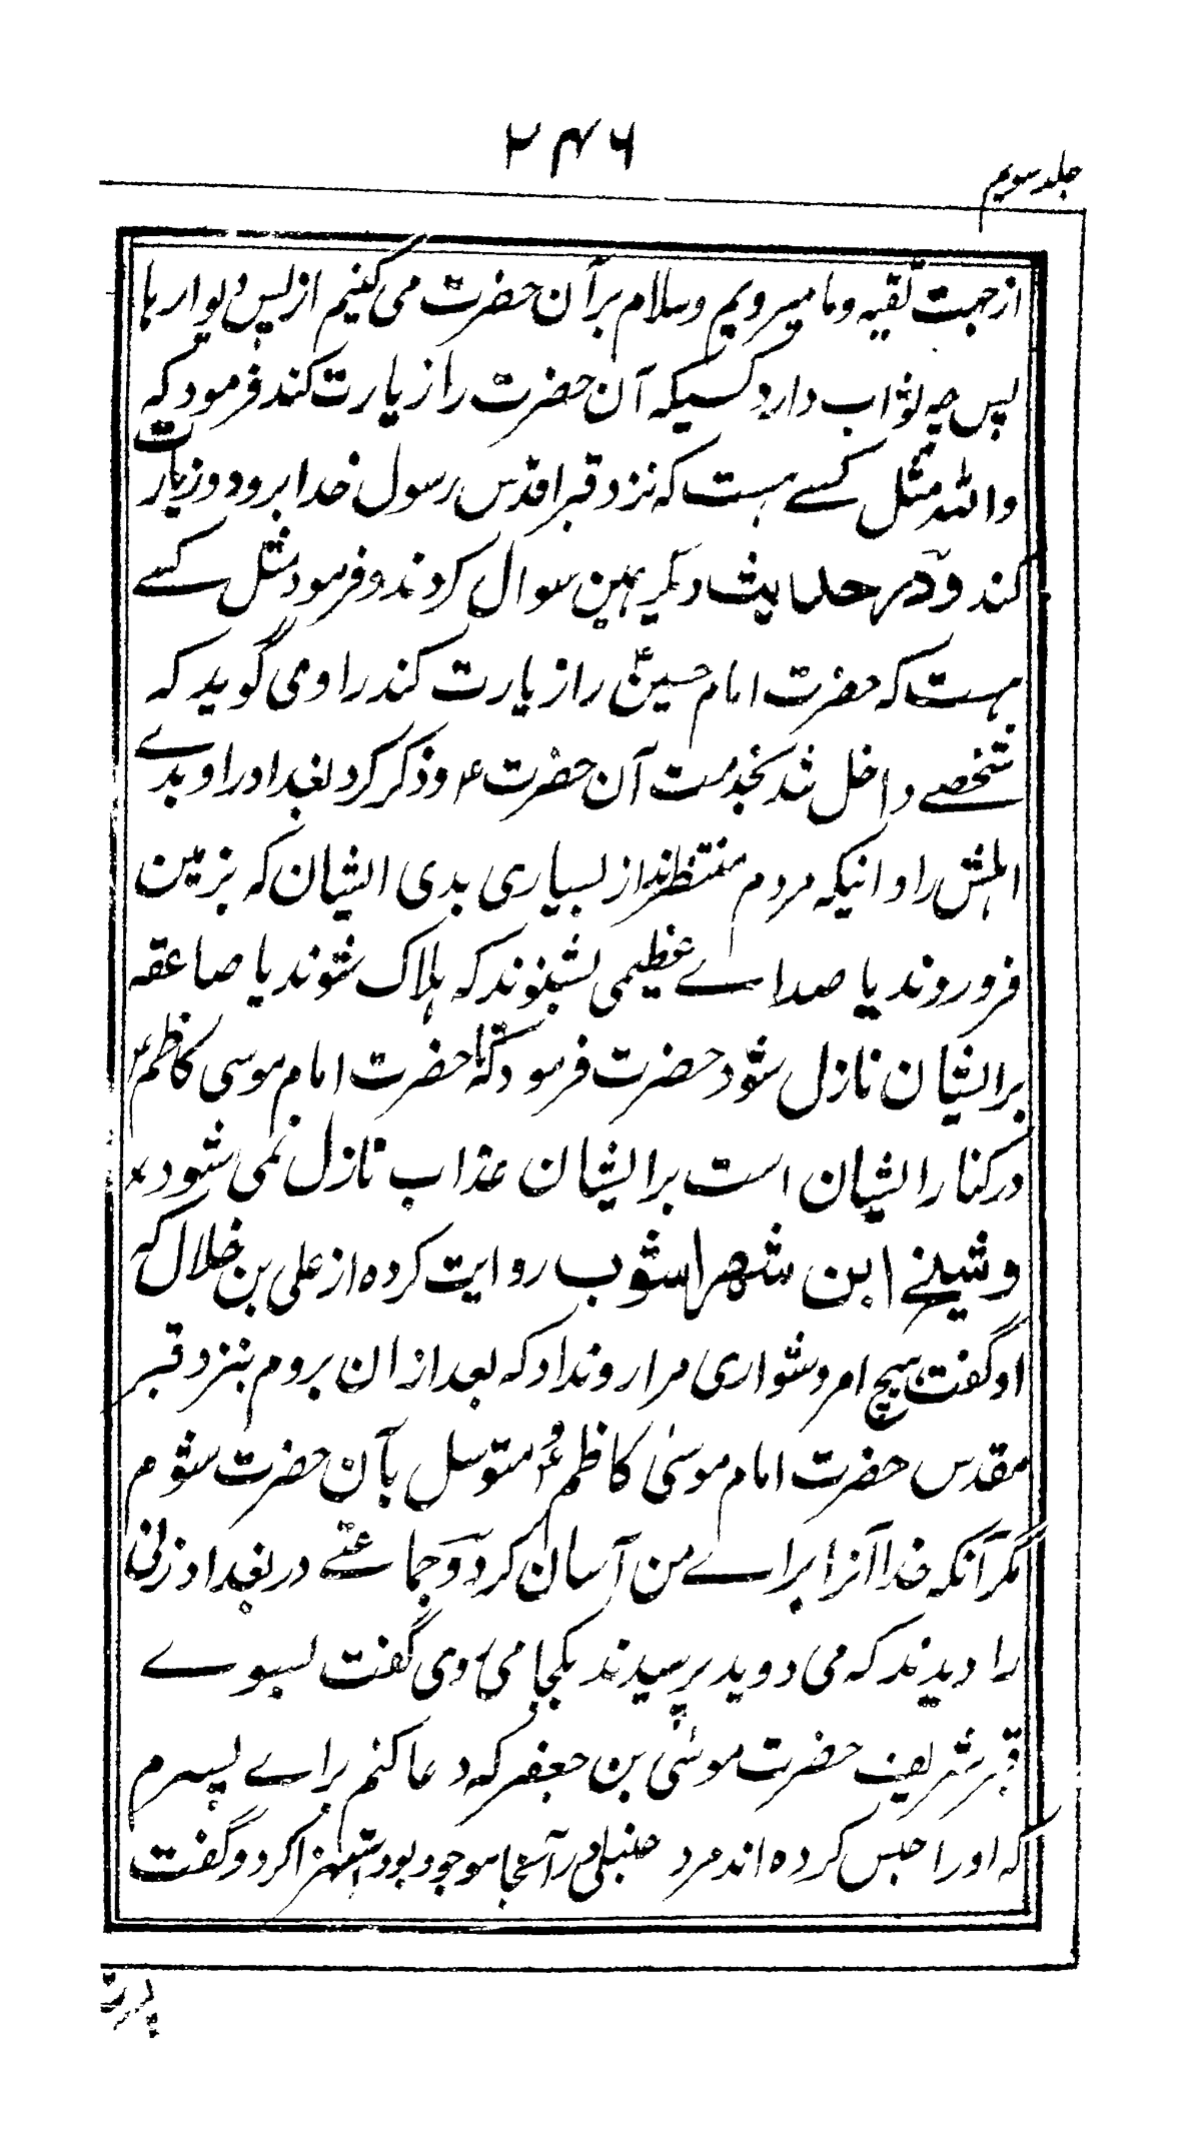 ۲۴۶
جلد سویم
از جهت تقیه و ما میرویم و سلام بر آن حضرت می کنیم از پس دیوارها
پس چه ثواب دارد کسیکه آن حضرت را زیارت کند فرمود که
والله مثل کسے هست که نزد قبر اقدس رسول خدا برود و زیارت
کند و در حدیث دیگر همین سوال کردند و فرمود مثل کسے
هست که حضرت امام حسینؑ را زیارت کند راوی گوید که
شخصے داخل شد بخدمت آن حضرت ع و ذکر کرد بغداد را و بدے
اهلش را و اینکه مردم منتظرند از بسیاری بدی ایشان که بزمین
فرو روند یا صداے عظیمی بشنوند که هلاک شوند یا صاعقه
بر ایشان نازل شود حضرت فرمود که تا حضرت امام موسی کاظم ع
در کنار ایشان است بر ایشان عذاب نازل نمی شود
و شیخ ابن شهراشوب روایت کرده از علی بن خلال که
او گفت هیچ امر دشواری مرا رو نداد که بعد از ان بروم بنزد قبر
مقدس حضرت امام موسیٰ کاظم ع و متوسل بآن حضرت شوم
مگر آنکه خدا آنرا براے من آسان کرد و جماعتے در بغداد زنی
را دیدند که می دوید پرسیدند بکجا می روی گفت بسوے
قبر شریف حضرت موسیٰ بن جعفر که دعا کنم براے پسرم
که او را حبس کرده اند مرد حنبلی در آنجا موجود بود استهزا کرد و گفت
پسرت